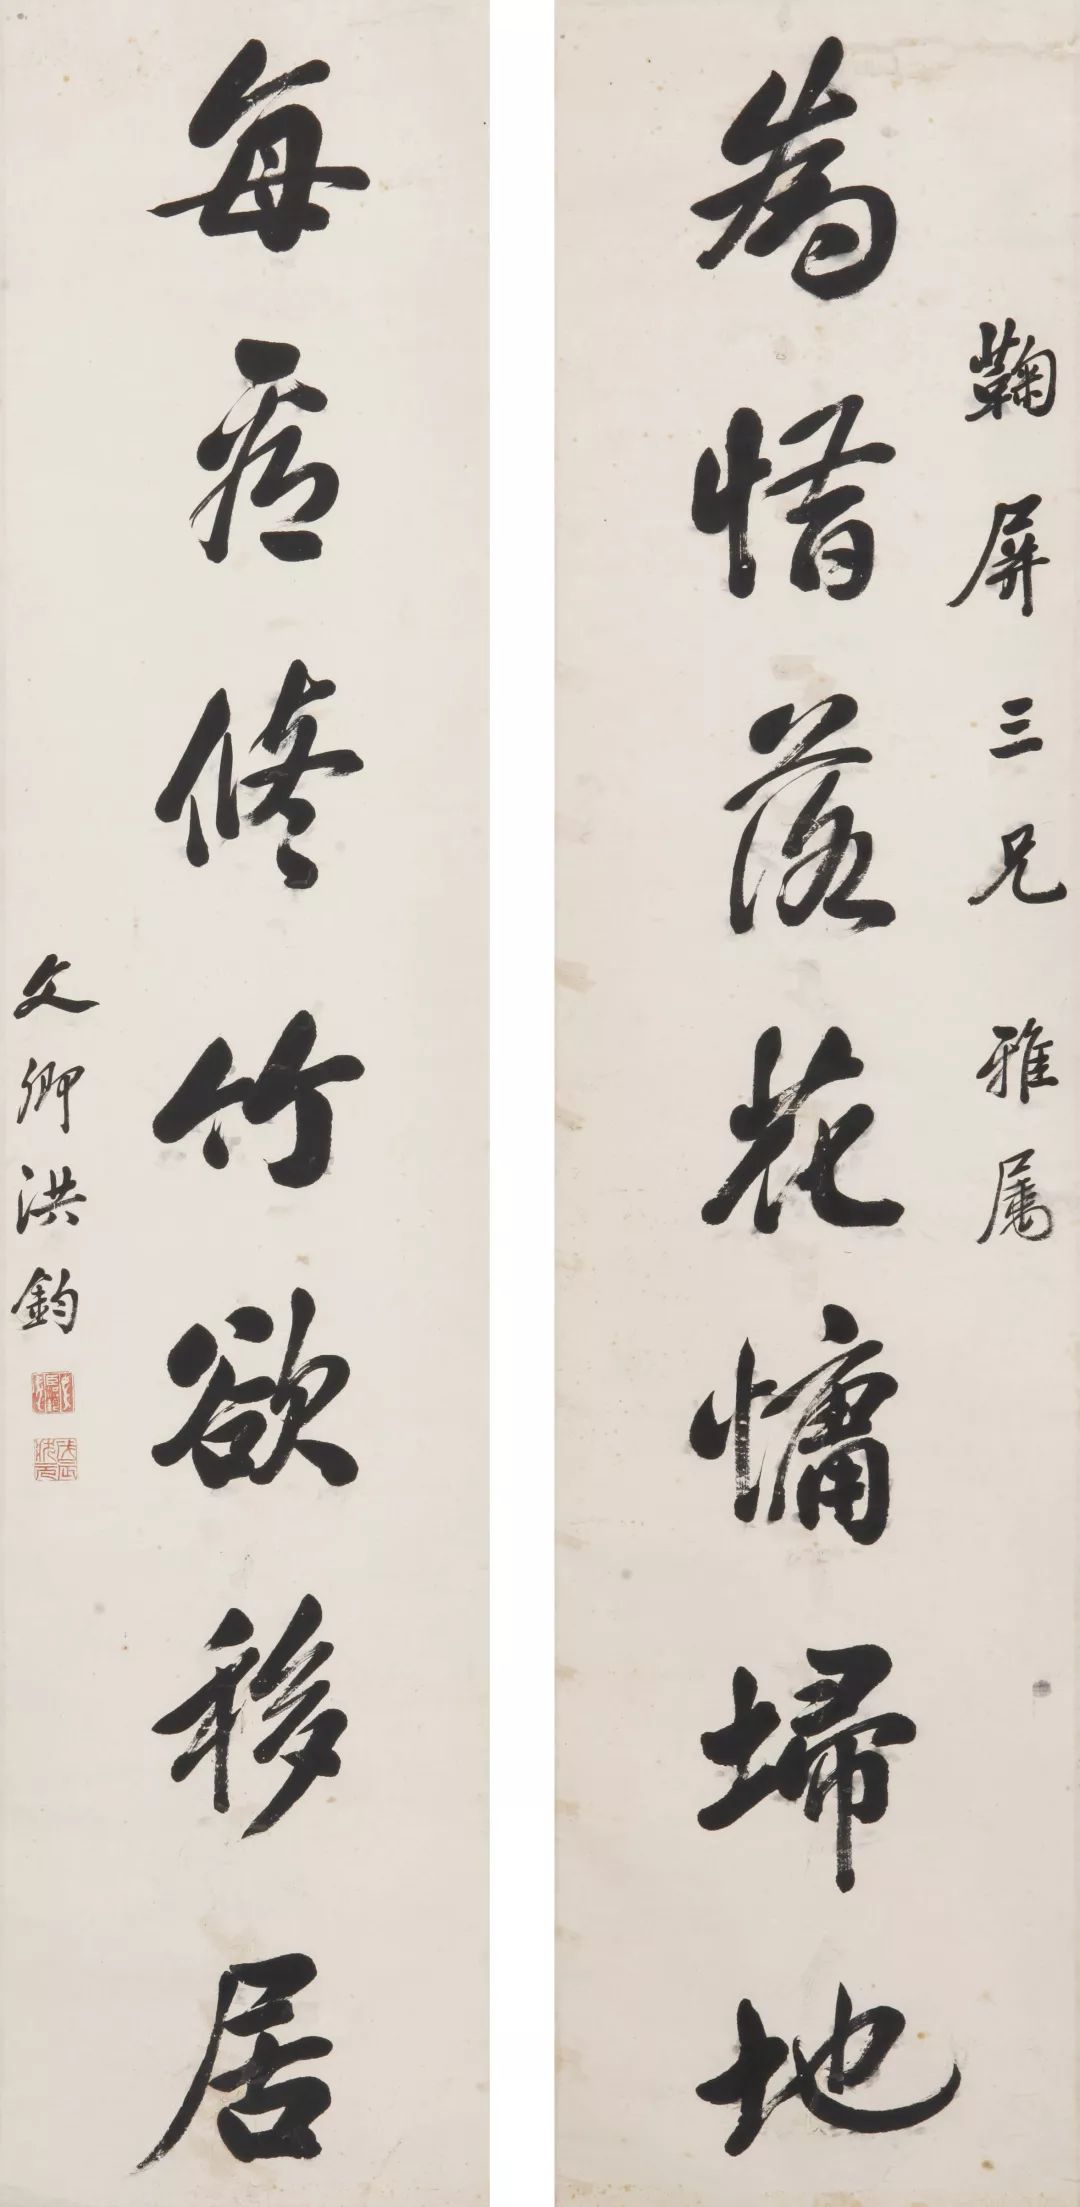 鞠屏三兄雅属
為惜落花慵埽地
每看修竹欲移居
文卿洪鈞